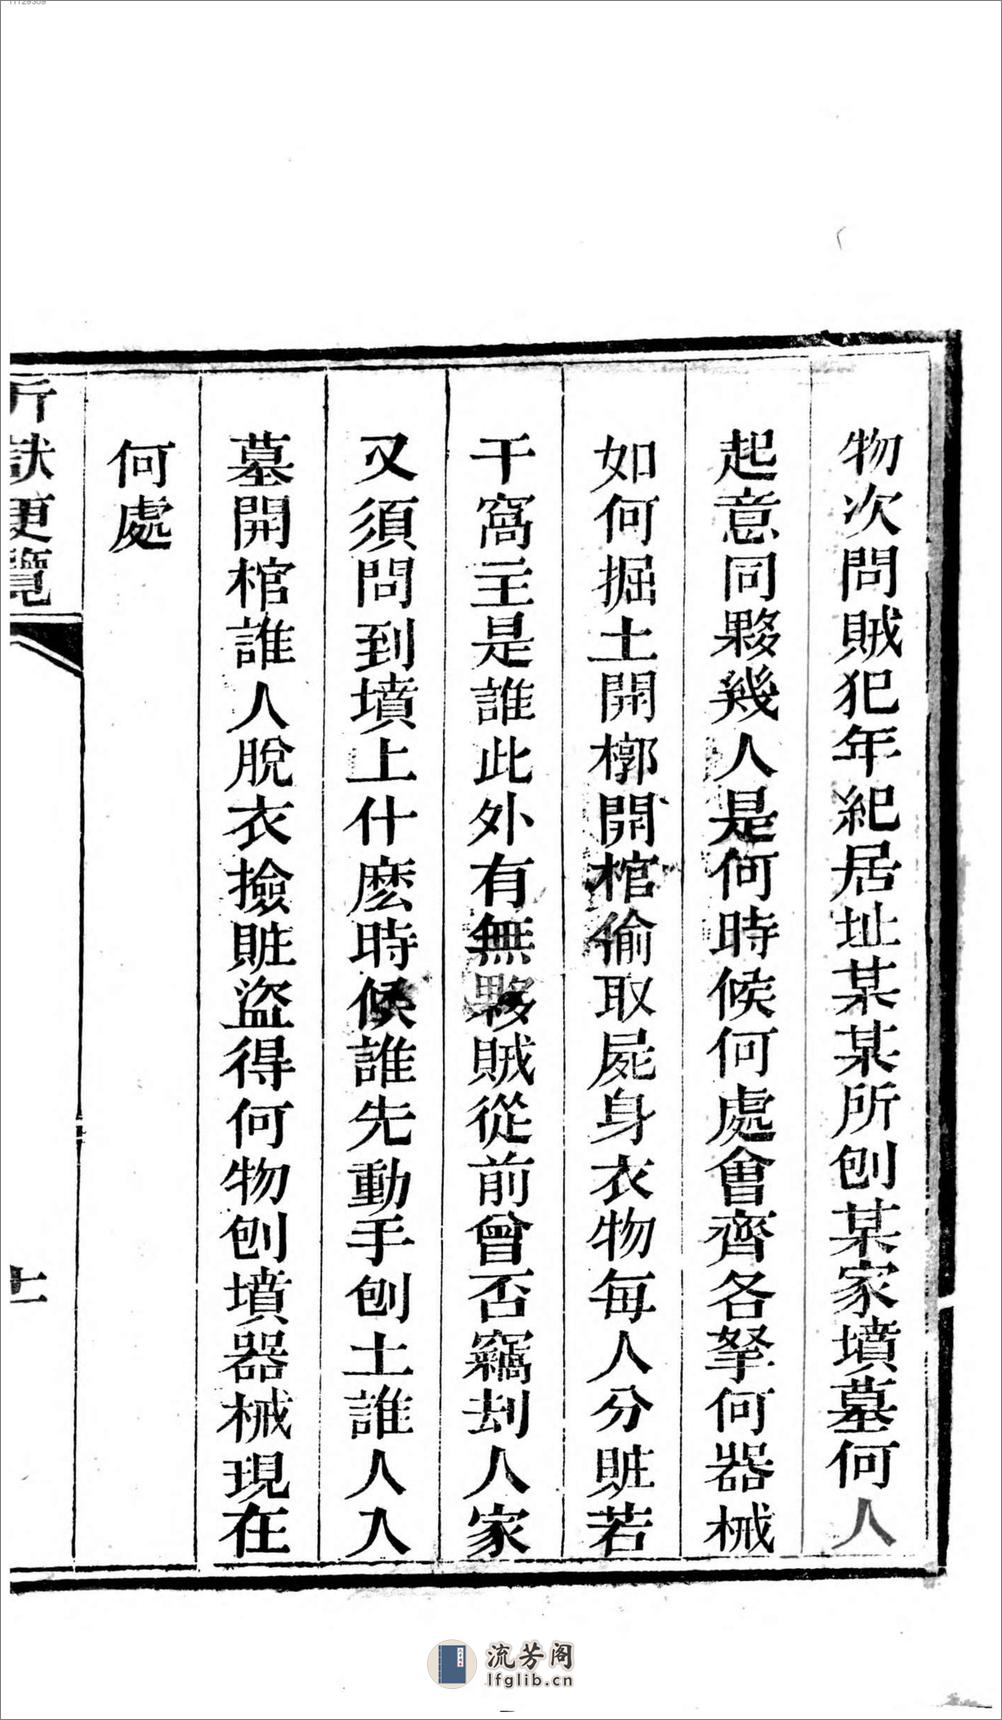 物次問賊犯年紀居址某某所刨某家墳墓何人
起意同夥幾人是何時候何處會齊各拏何器械
如何掘土開槨開棺偷取屍身衣物每人分賍若
干窩主是誰此外有無夥賊從前曾否竊刦人家
又須問到墳上什麽時候誰先動手刨土誰人入
墓開棺誰人脫衣撿賍盜得何物刨墳器械現在
何處
流芳阁
lfglib.cn